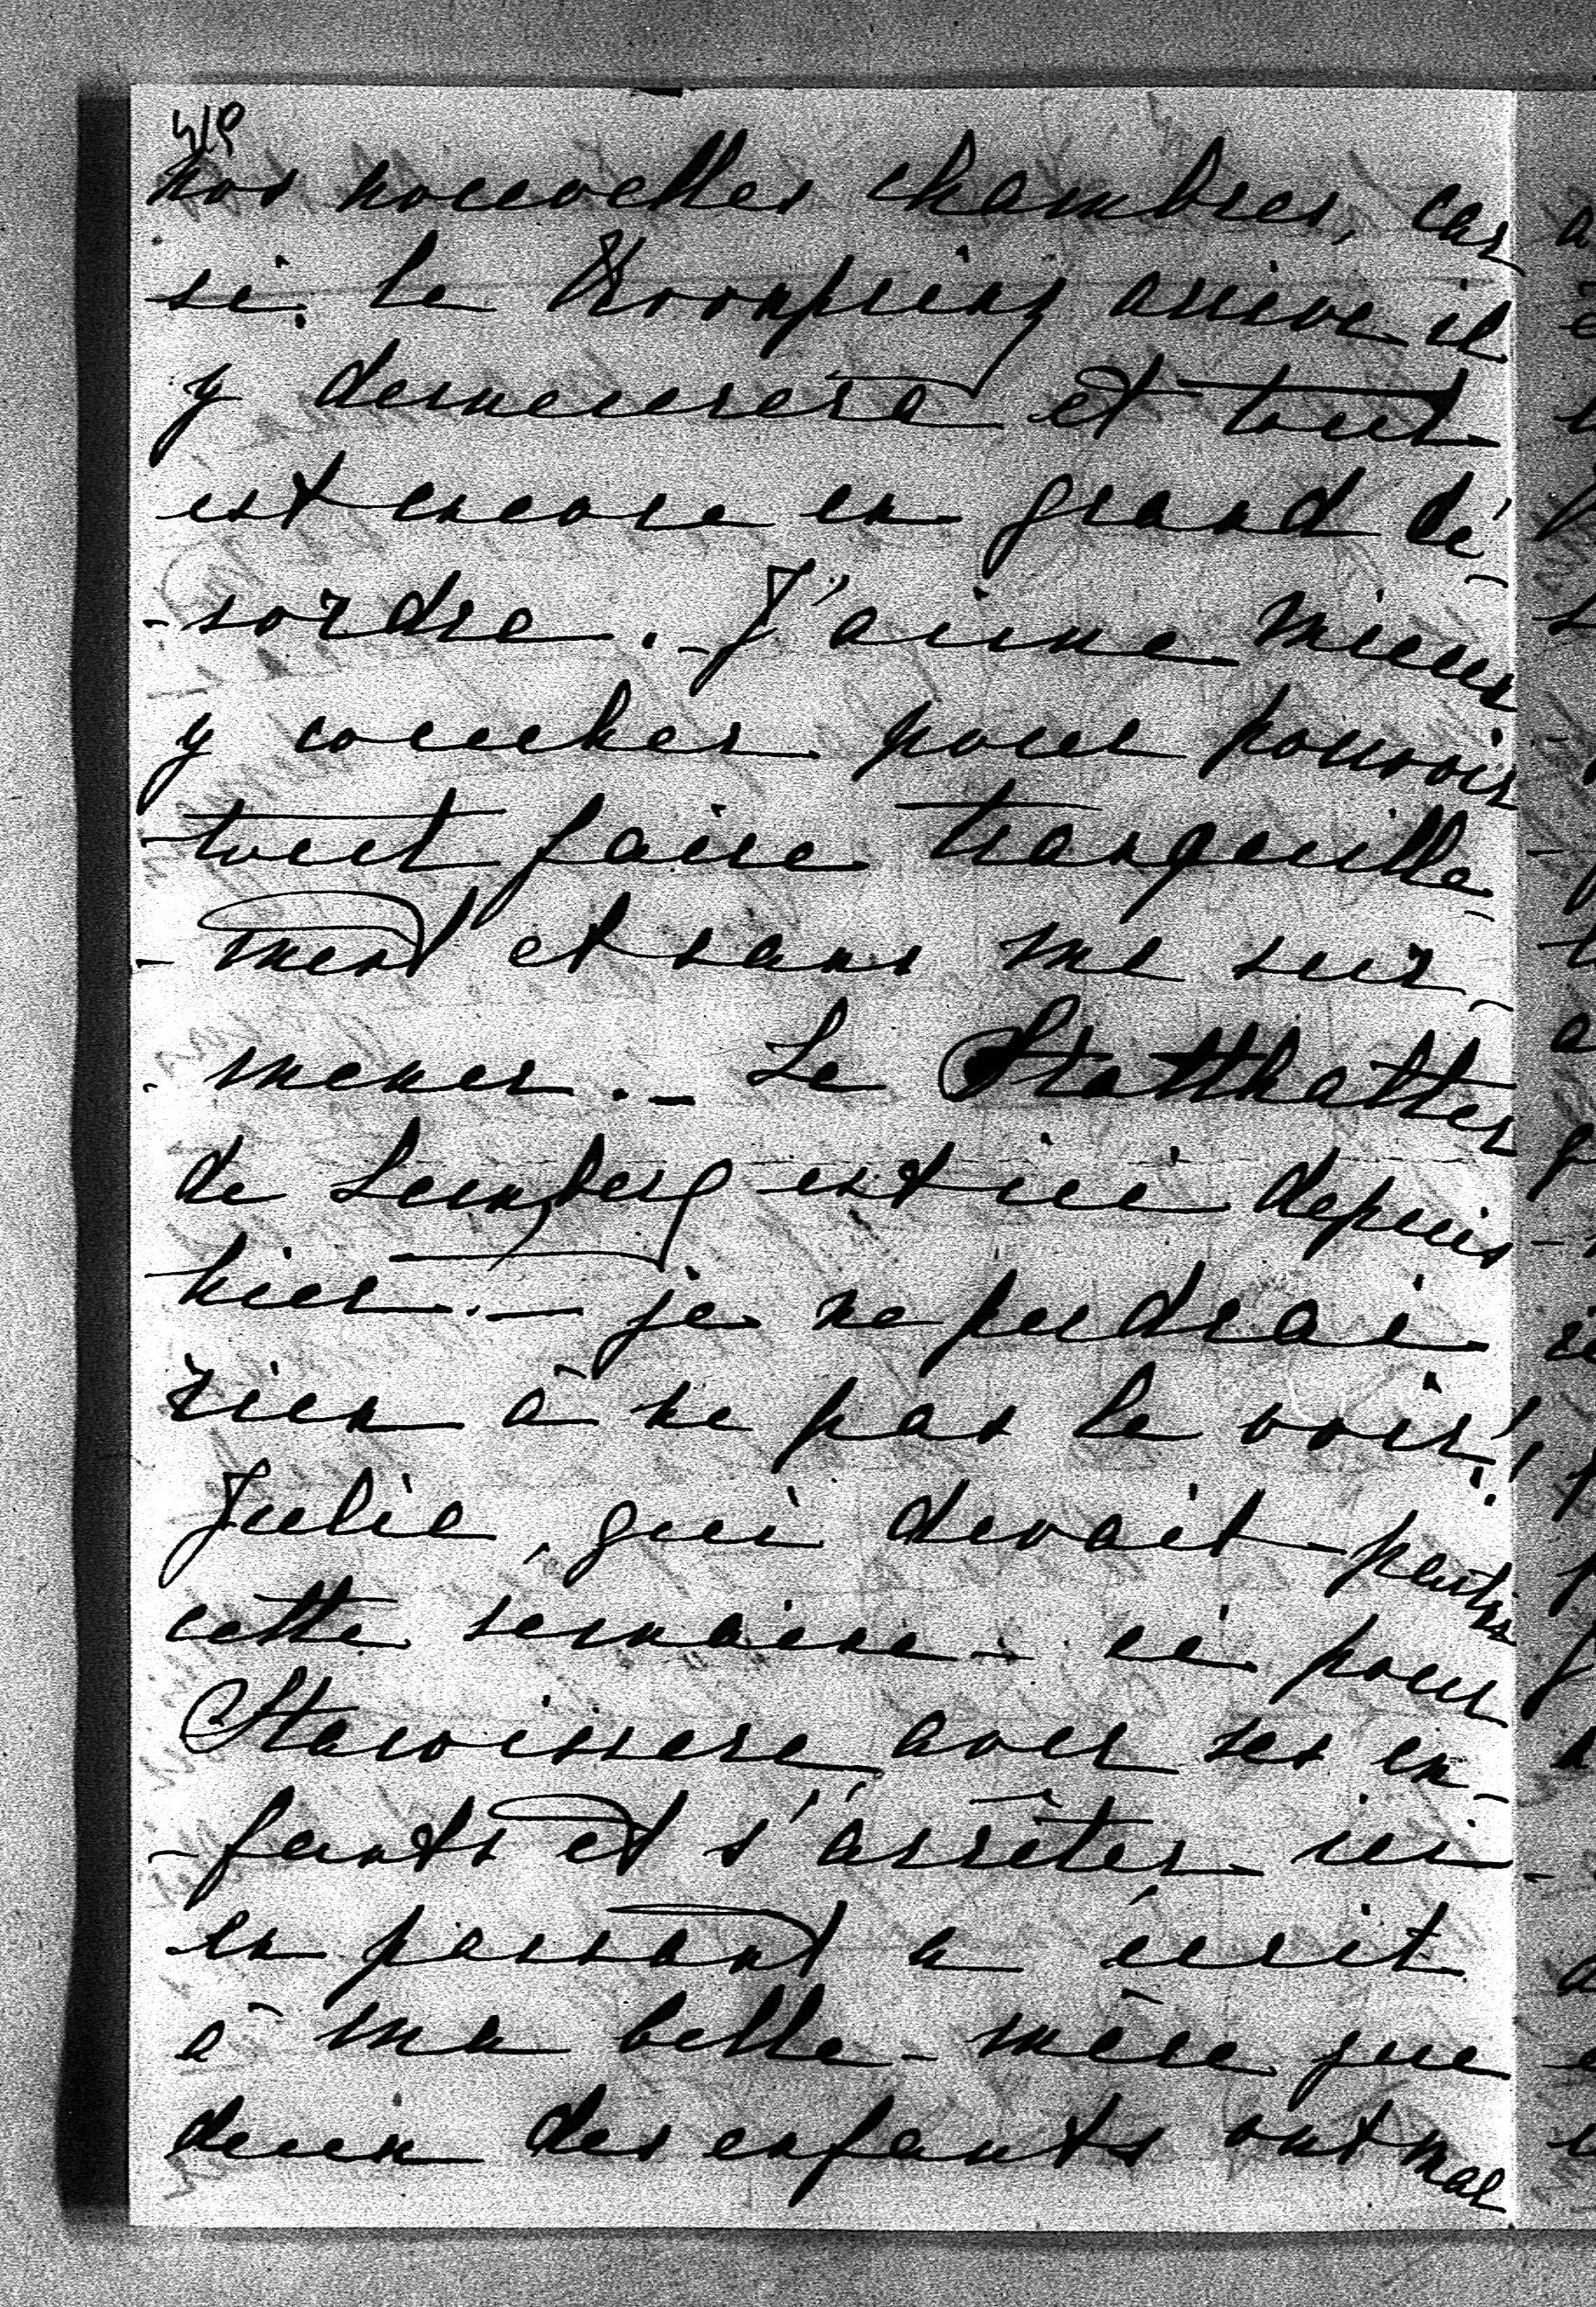 nos nouvelles chambres, car
si le Kronprinz arrive il
y demeurera et tout
est encore en grand dé-
-sordre. - J'aime mieux
y coucher pour pouvoir
tout faire tranquille-
-ment et sans me sur-
-mener. - Le Statthalter
de Lemberg est ici depuis
hier. - je ne perdrai
rien à ne pas le voir!
Julie, qui devait partir
cette semaine-ci pour
avec ses en-
-fants et s'arrêter ici
en passant a écrit
à ma belle-mère que
deux des enfants ont mal